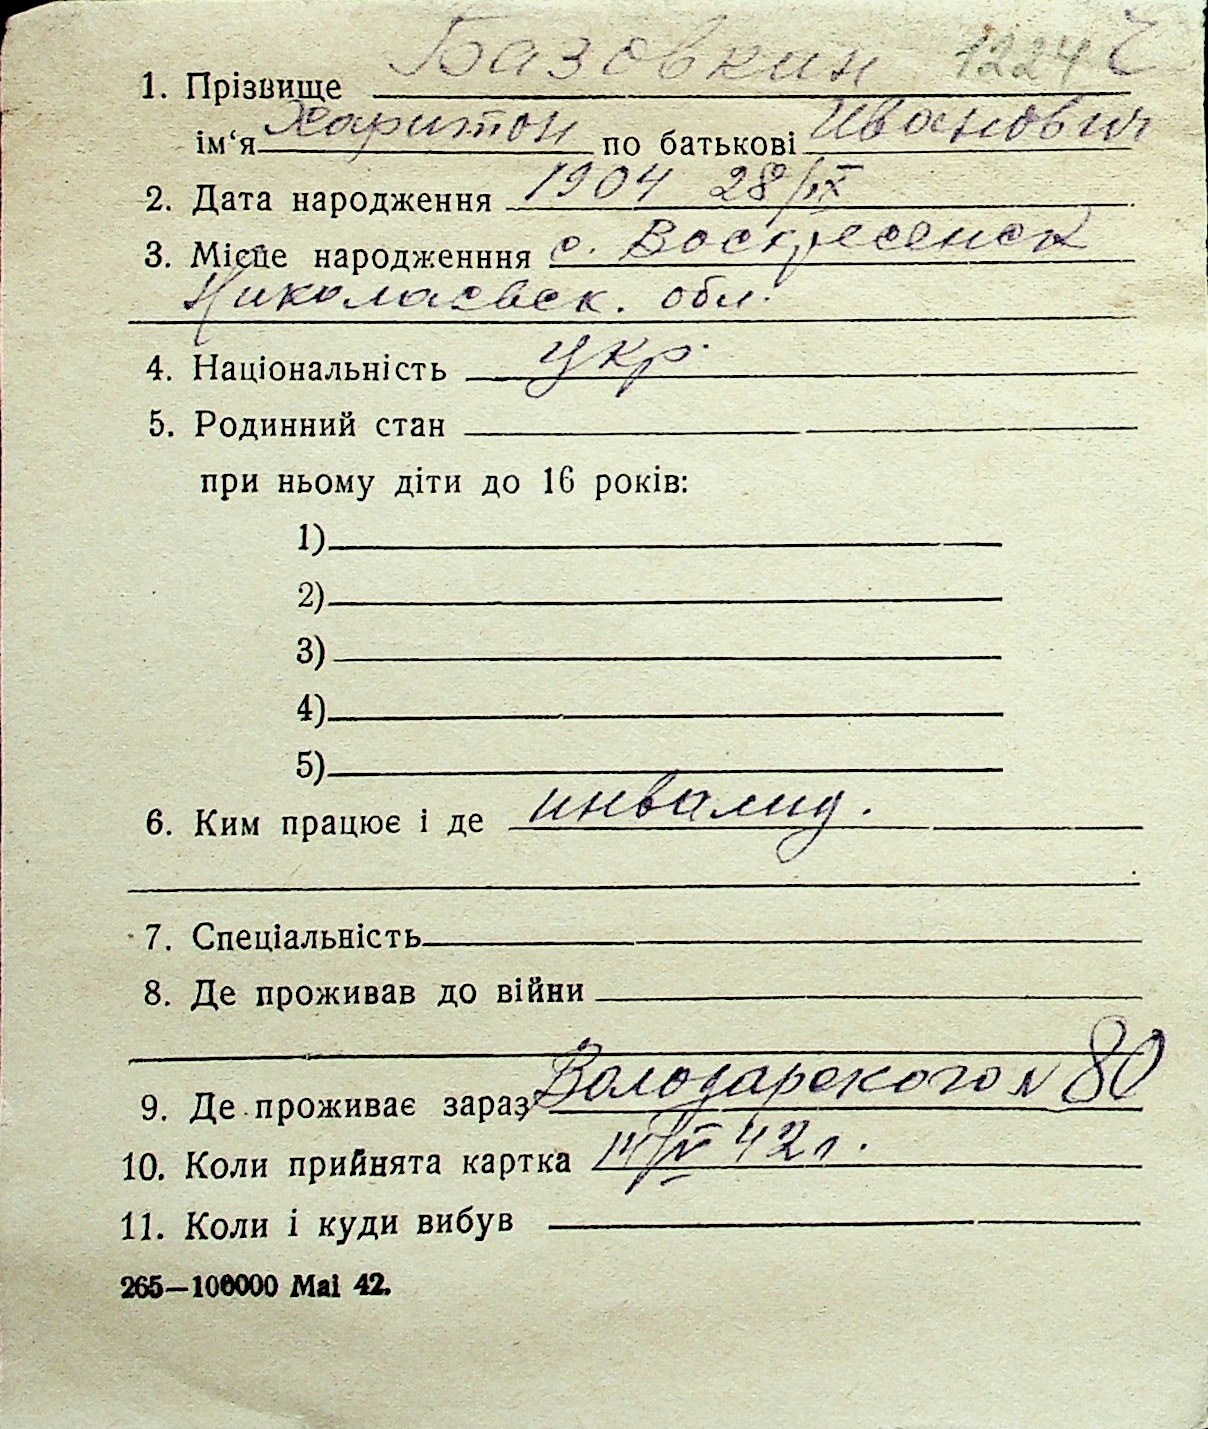 1. Прізвище Базовкин 1224
ім‘я Харитон по батькові Иванович
2. Дата народження 1904 28/IX
3. Місце народженння с. Воскресенск
Николаевск. обл.
4. Національність укр.
5. Родинний стан
при ньому діти до 16 років:
1)
2)
3)
4)
5)
6. Ким працює і де инвалид.
7. Спеціальність
8. Де проживав до війни
9. Де проживає зараз Володарского N 80
10. Коли прийнята картка 14/IV 42 г.
11. Коли і куди вибув
265—100000 Mai 42.